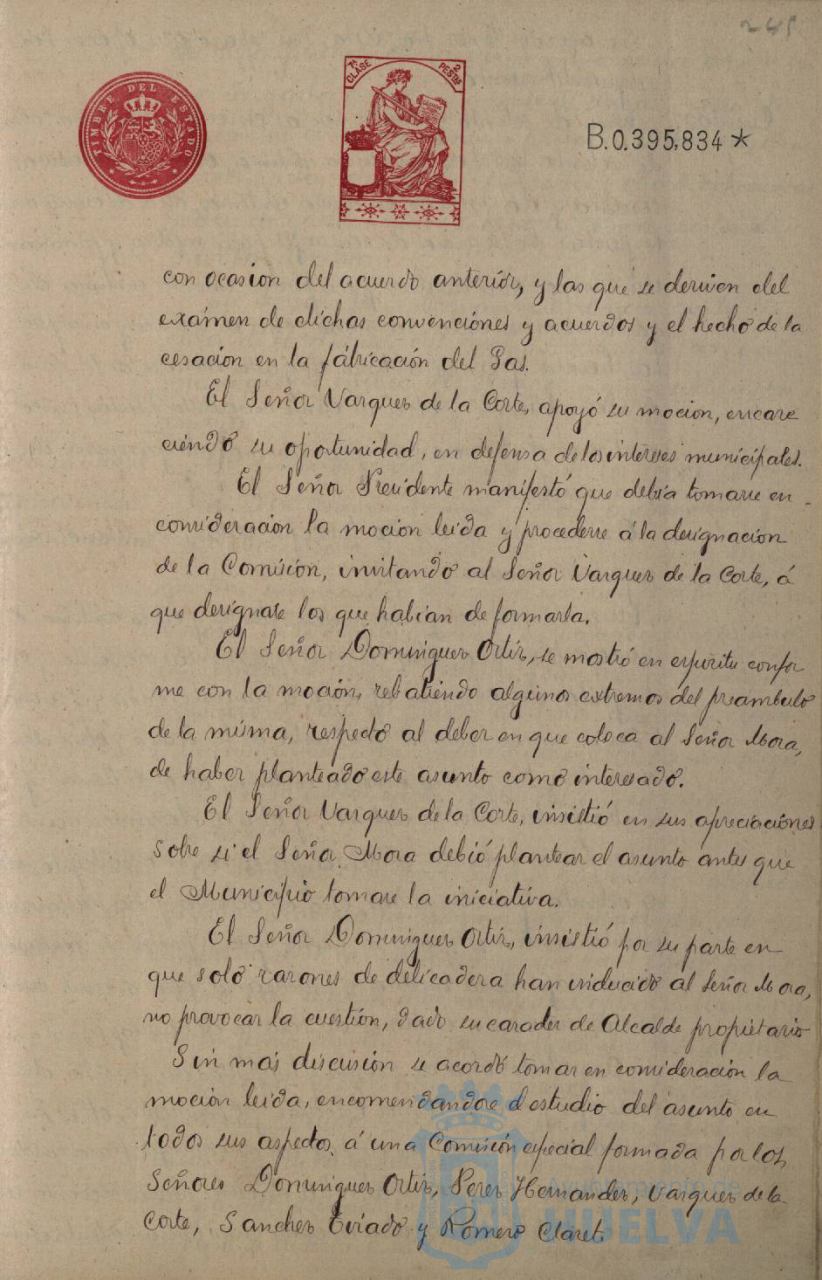 245
TIMBRE DEL ESTADO
7ª CLASE 2 PESETAS
B.0.395,834 *
con ocasion del acuerdo anterior, y las que se deriven del
exámen de dichas convenciones y acuerdos y el hecho de la
cesación en la fábricación del Gas.
El Señor Vazquez de la Corte, apoyó su mocion, encare
ciendo su oportunidad, en defensa de los intereses municipales.
El Señor Presidente manifestó que debia tomarse en
consideración la moción leida y procederse á la designacion
de la Comisión, invitando al Señor Vazquez de la Corte, á
que designase los que habian de formarla.
El Señor Dominguez Ortiz, se mostró en espiritu confor
me con la moción, rebatiendo algunos extremos del preambulo
de la misma, respecto al deber en que coloca al Señor Mora,
de haber planteado este asunto como interesado.
El Señor Vazquez de la Corte, insistió en sus apreciaciones
sobre si el Señor Mora debió plantear el asunto antes que
el Municipio tomase la iniciativa.
El Señor Dominguez Ortiz, insistió por su parte en
que solo razones de delicadeza han inducido al Señor Mora,
no provocar la cuestión, dado su caracter de Alcalde propietario
Sin más discusión se acordó tomar en consideración la
moción leida, encomendandose el estudio del asunto en
todos sus aspectos, á una Comisión especial formada por los
Señores Dominguez Ortiz, Perez Hernandez, Vazquez de la
Corte, Sanchez Tviado y Romero Claret.
Ayuntamiento de
HUELVA